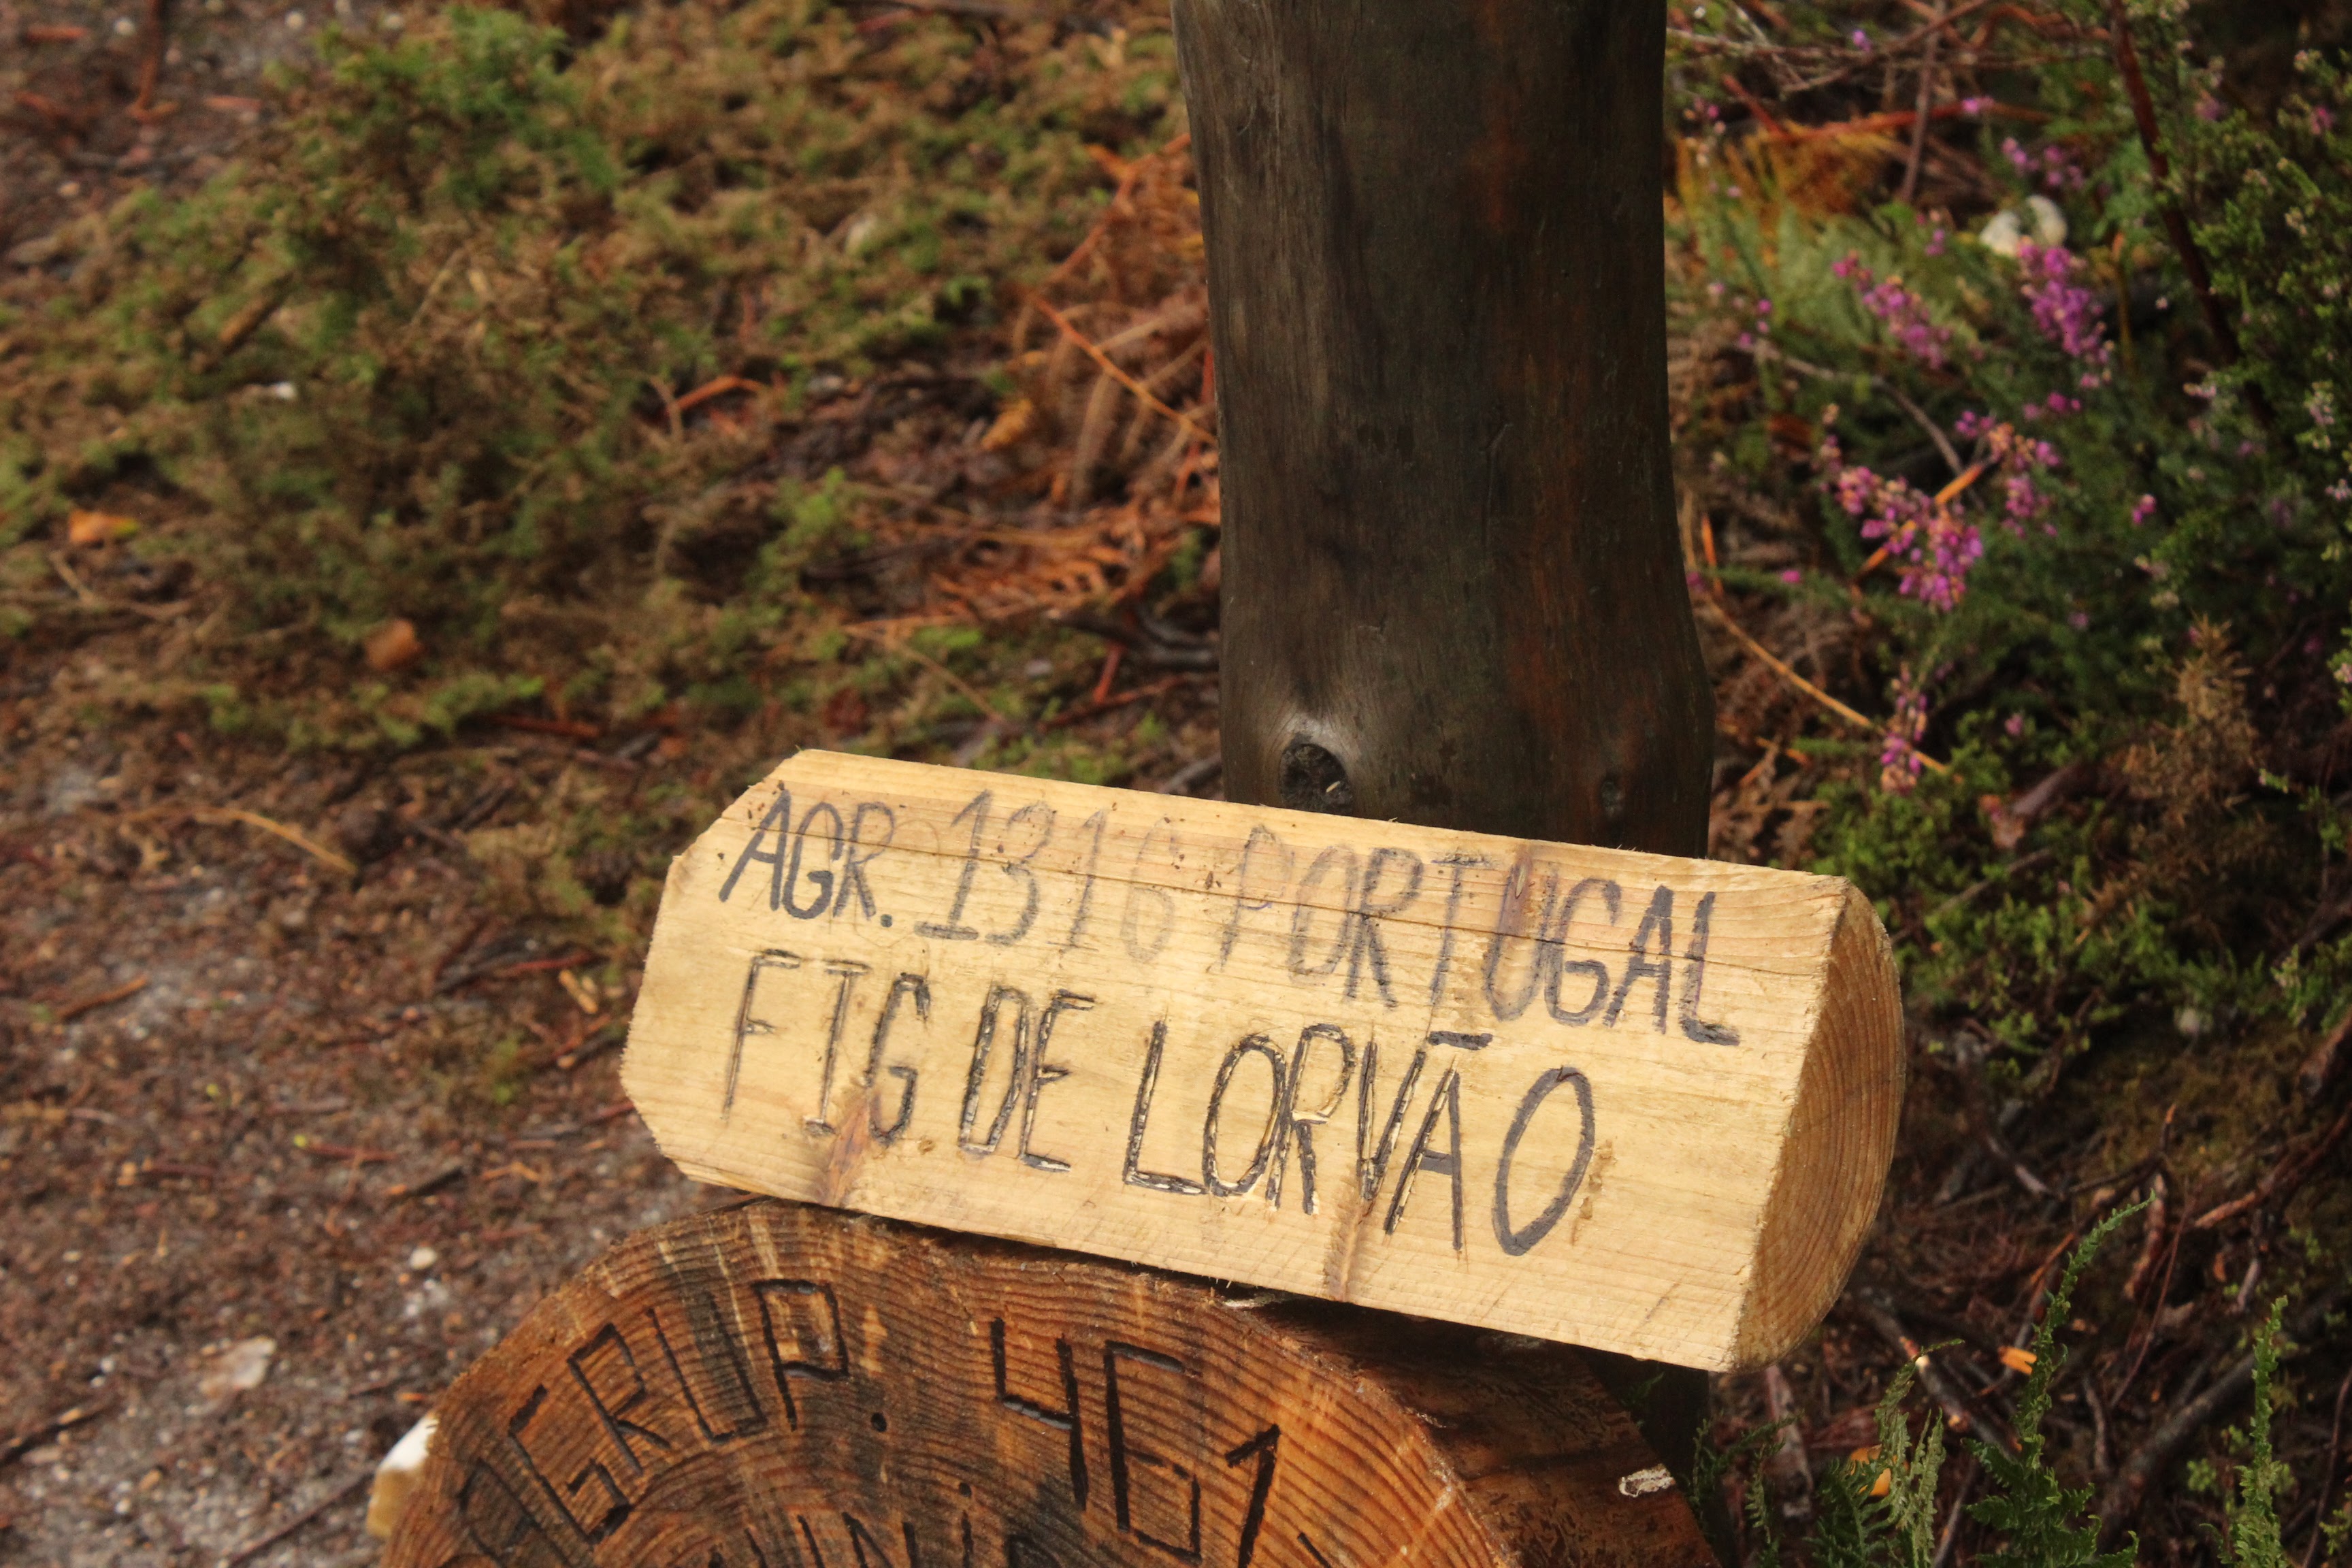 AGR. 1316 PORTUGAL
FIG DE LORVÃO
AGRUP. 461